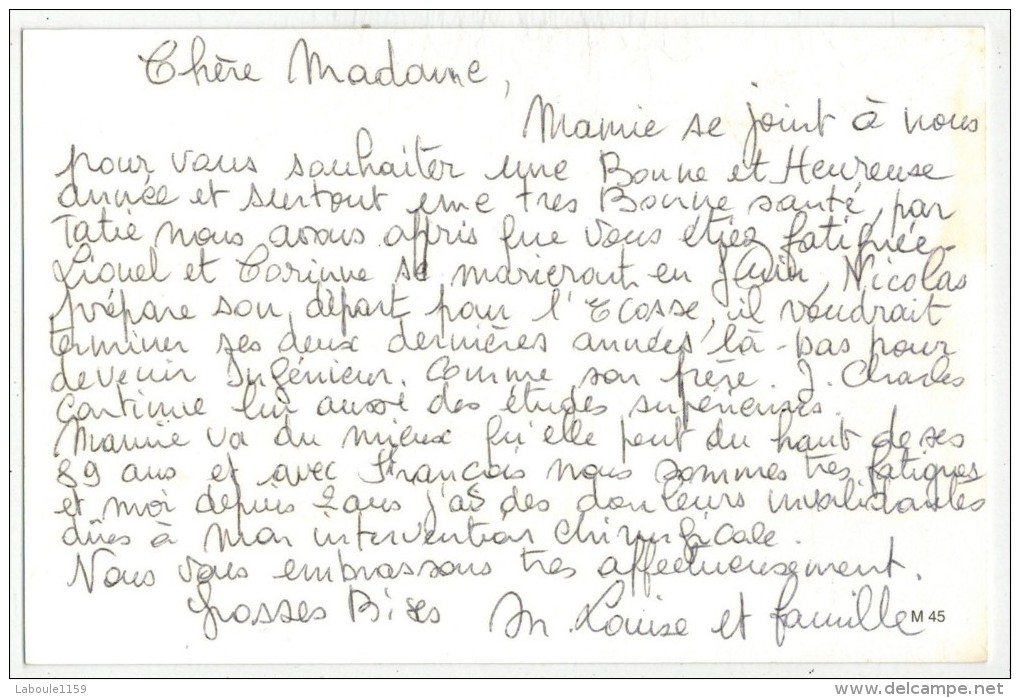 Chère Madame,
Mamie se joint à nous
pour vous souhaiter une Bonne et Heureuse
année et surtout une très Bonne santé, par
Tatie nous avons appris que vous étiez fatiguée.
Lionel et Corinne se marieront en Juin, Nicolas
prépare son départ pour l'Ecosse, il voudrait
terminer ses deux dernières années là-bas pour
devenir Ingénieur. Comme son frère. J. Charles
continue lui aussi des études supérieures.
Mamie va du mieux qu'elle peut du haut de ses
89 ans et avec François nous sommes très fatigués
et moi depuis 2 ans j'ai des douleurs invalidantes
dûes à mon intervention chirurgicale.
Nous vous embrassons très affectueusement.
Grosses Bises M. Louise et famille
M 45
Laboule1159
delcampe.net